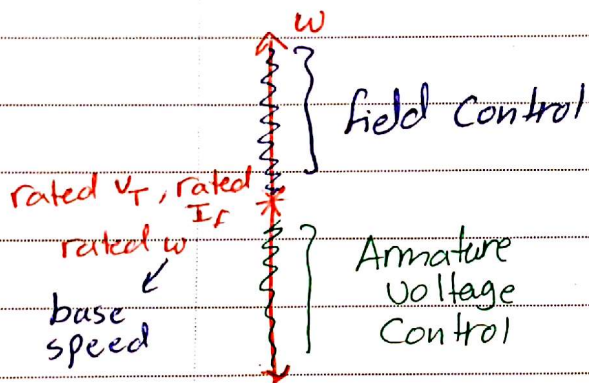 ω
field Control
rated V_T, rated
I_f
rated ω
base
speed
Armature
Voltage
Control